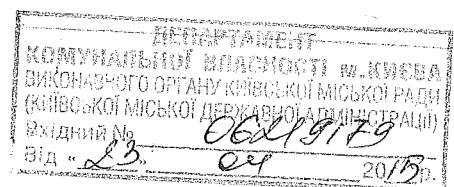 ДЕПАРТАМЕНТ
КОМУНАЛЬНОЇ ВЛАСНОСТІ м.КИЄВА
ВИКОНАВЧОГО ОРГАНУ КИЇВСЬКОЇ МІСЬКОЇ РАДИ
(КИЇВСЬКОЇ МІСЬКОЇ ДЕРЖАВНОЇ АДМІНІСТРАЦІЇ)
Вхідний №
Від "23" 04 2015р.